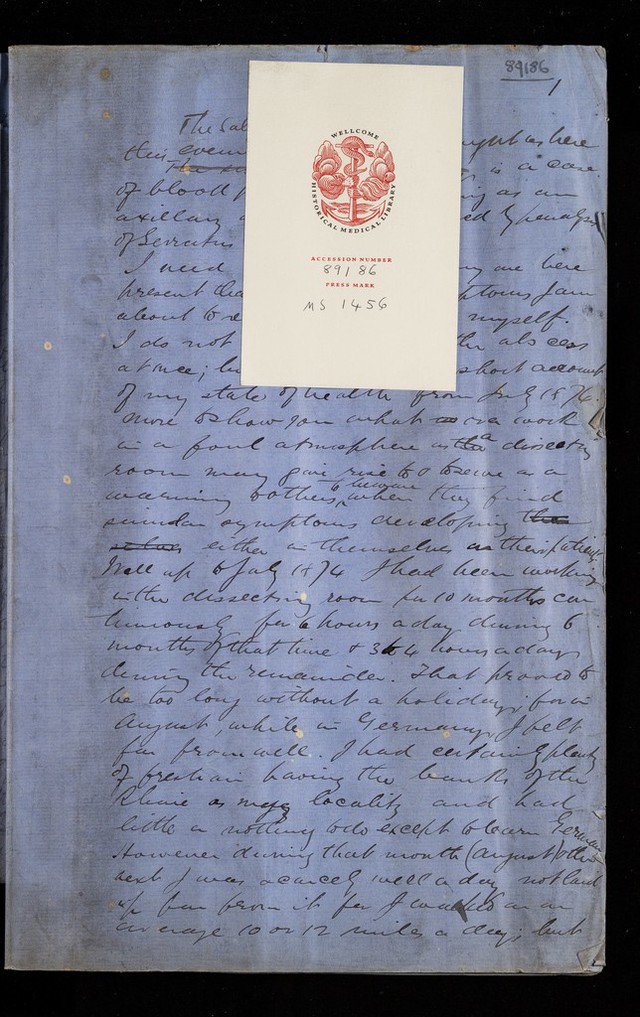 89186
1
The Sub
this even ... here
is a case
of blood ... as an
axillary
of Serratus
I need ... are here
present tha ... symptoms I am
about to ... myself.
I do not ... abscess
at once; bu ... short account
of my state of health from July 1874.
more to show you what over work
in a foul atmosphere as a dissecting
room may give rise to & to serve as a
warning to others, to beware when they find
similar symptoms developing
either in themselves or their patients.
Well up to July 1874 I had been working
in the dissecting room for 10 months con
tinuously for 6 hours a day during 6
months of that time & 3 to 4 hours a day
during the remainder. That proved to
be too long without a holiday; for in
August, while in Germany, I felt
far from well. I had certainly plenty
of fresh air having the banks of the
Rhine as my locality and had
little or nothing to do except to learn German
However during that month (August) & the
next I was scarcely well a day not laid
up far from it for I walked on an
average 10 or 12 miles a day; but
WELLCOME
HISTORICAL MEDICAL LIBRARY
ACCESSION NUMBER
89186
PRESS MARK
MS 1456